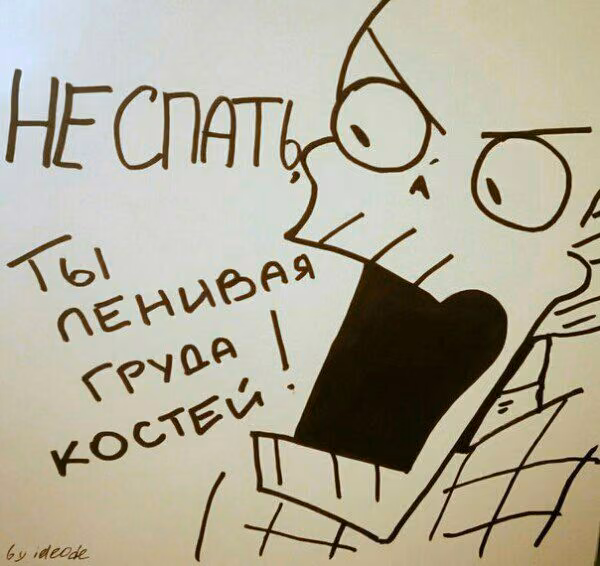 НЕ СПАТЬ,
ТЫ
ЛЕНИВАЯ
ГРУДА
КОСТЕЙ!
by ideode